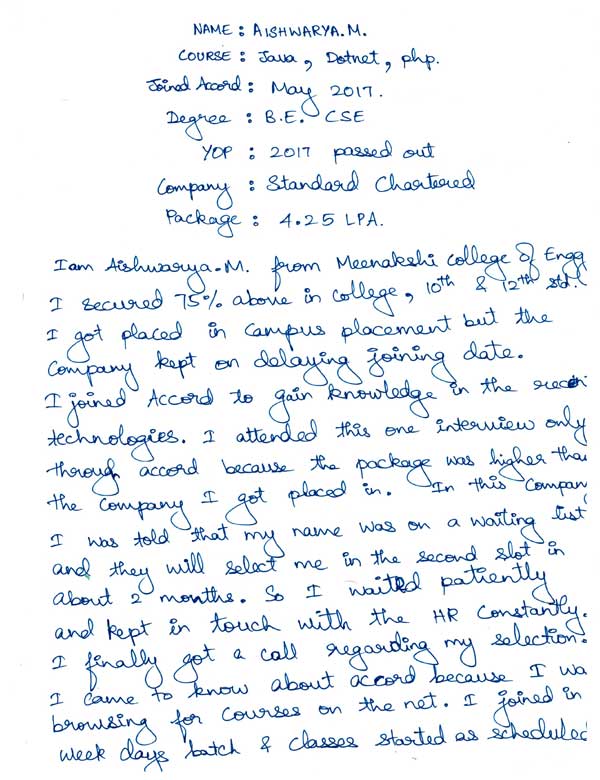 NAME : AISHWARYA.M.
COURSE : Java, Dotnet, php.
Joined Accord : May 2017.
Degree : B.E. CSE
YOP : 2017 passed out
Company : Standard Chartered
Package : 4.25 LPA.
I am Aishwarya.M. from Meenakshi college of Engg
I secured 75% above in college, 10th & 12th std.
I got placed in campus placement but the
company kept on delaying joining date.
I joined Accord to gain knowledge in the
technologies. I attended this one interview only
through accord because the package was higher tha
the company I got placed in. In this Compan
I was told that my name was on a waiting list
and they will select me in the second slot in
about 2 months. So I waited patiently
and kept in touch with the HR Constantly.
I finally got a call regarding my selection.
I came to know about accord because I wa
browsing for courses on the net. I joined in
week days batch & classes started as scheduled